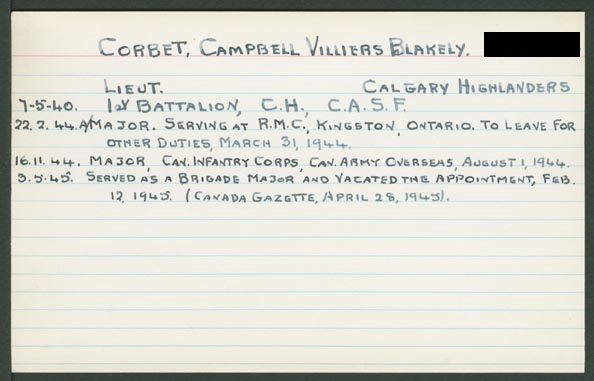 CORBET, CAMPBELL VILLIERS BLAKELY.
LIEUT. CALGARY HIGHLANDERS
7-5-40. 1st BATTALION, C.H., C.A.S.F.
22.2.44. A/MAJOR. SERVING AT R.M.C., KINGSTON, ONTARIO. TO LEAVE FOR
OTHER DUTIES, MARCH 31, 1944.
16.11.44. MAJOR, CAN. INFANTRY CORPS, CAN. ARMY OVERSEAS, AUGUST 1, 1944.
3.5.45. SERVED AS A BRIGADE MAJOR AND VACATED THE APPOINTMENT, FEB.
12, 1945. (CANADA GAZETTE, APRIL 28, 1945).